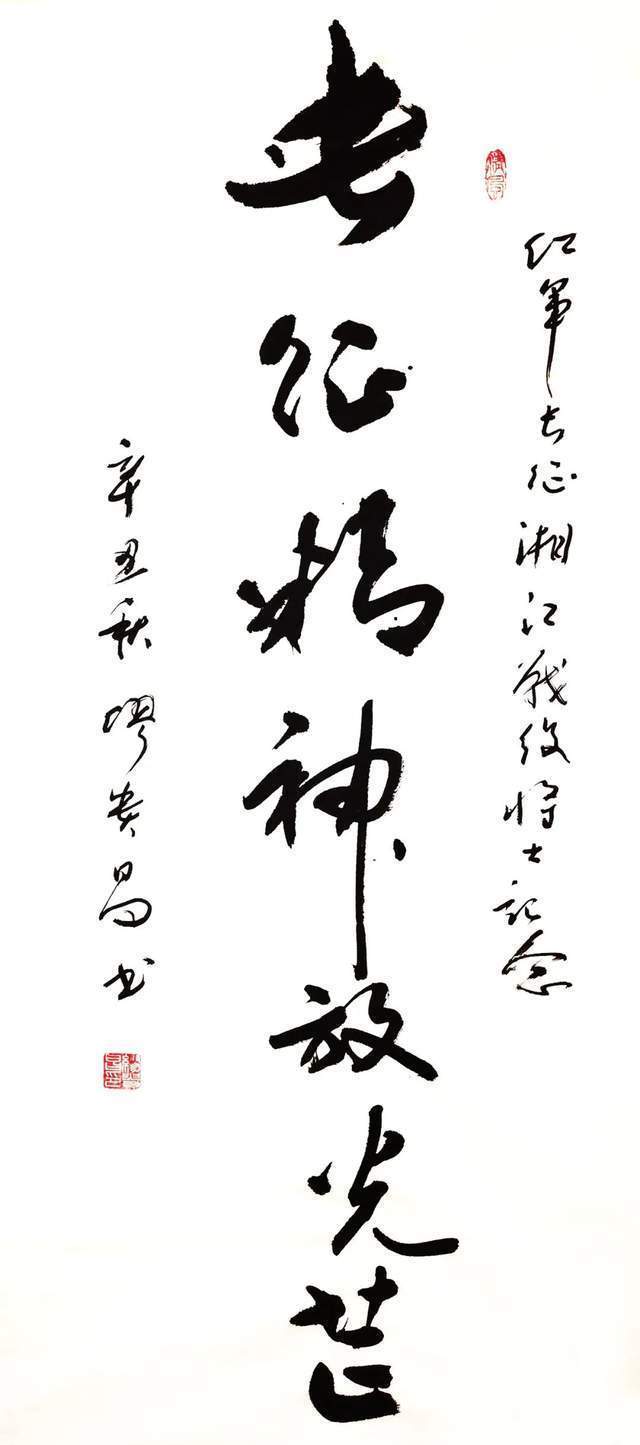 红军长征湘江战役将士记念
长征精神放光芒
辛丑秋 廖贵昌书